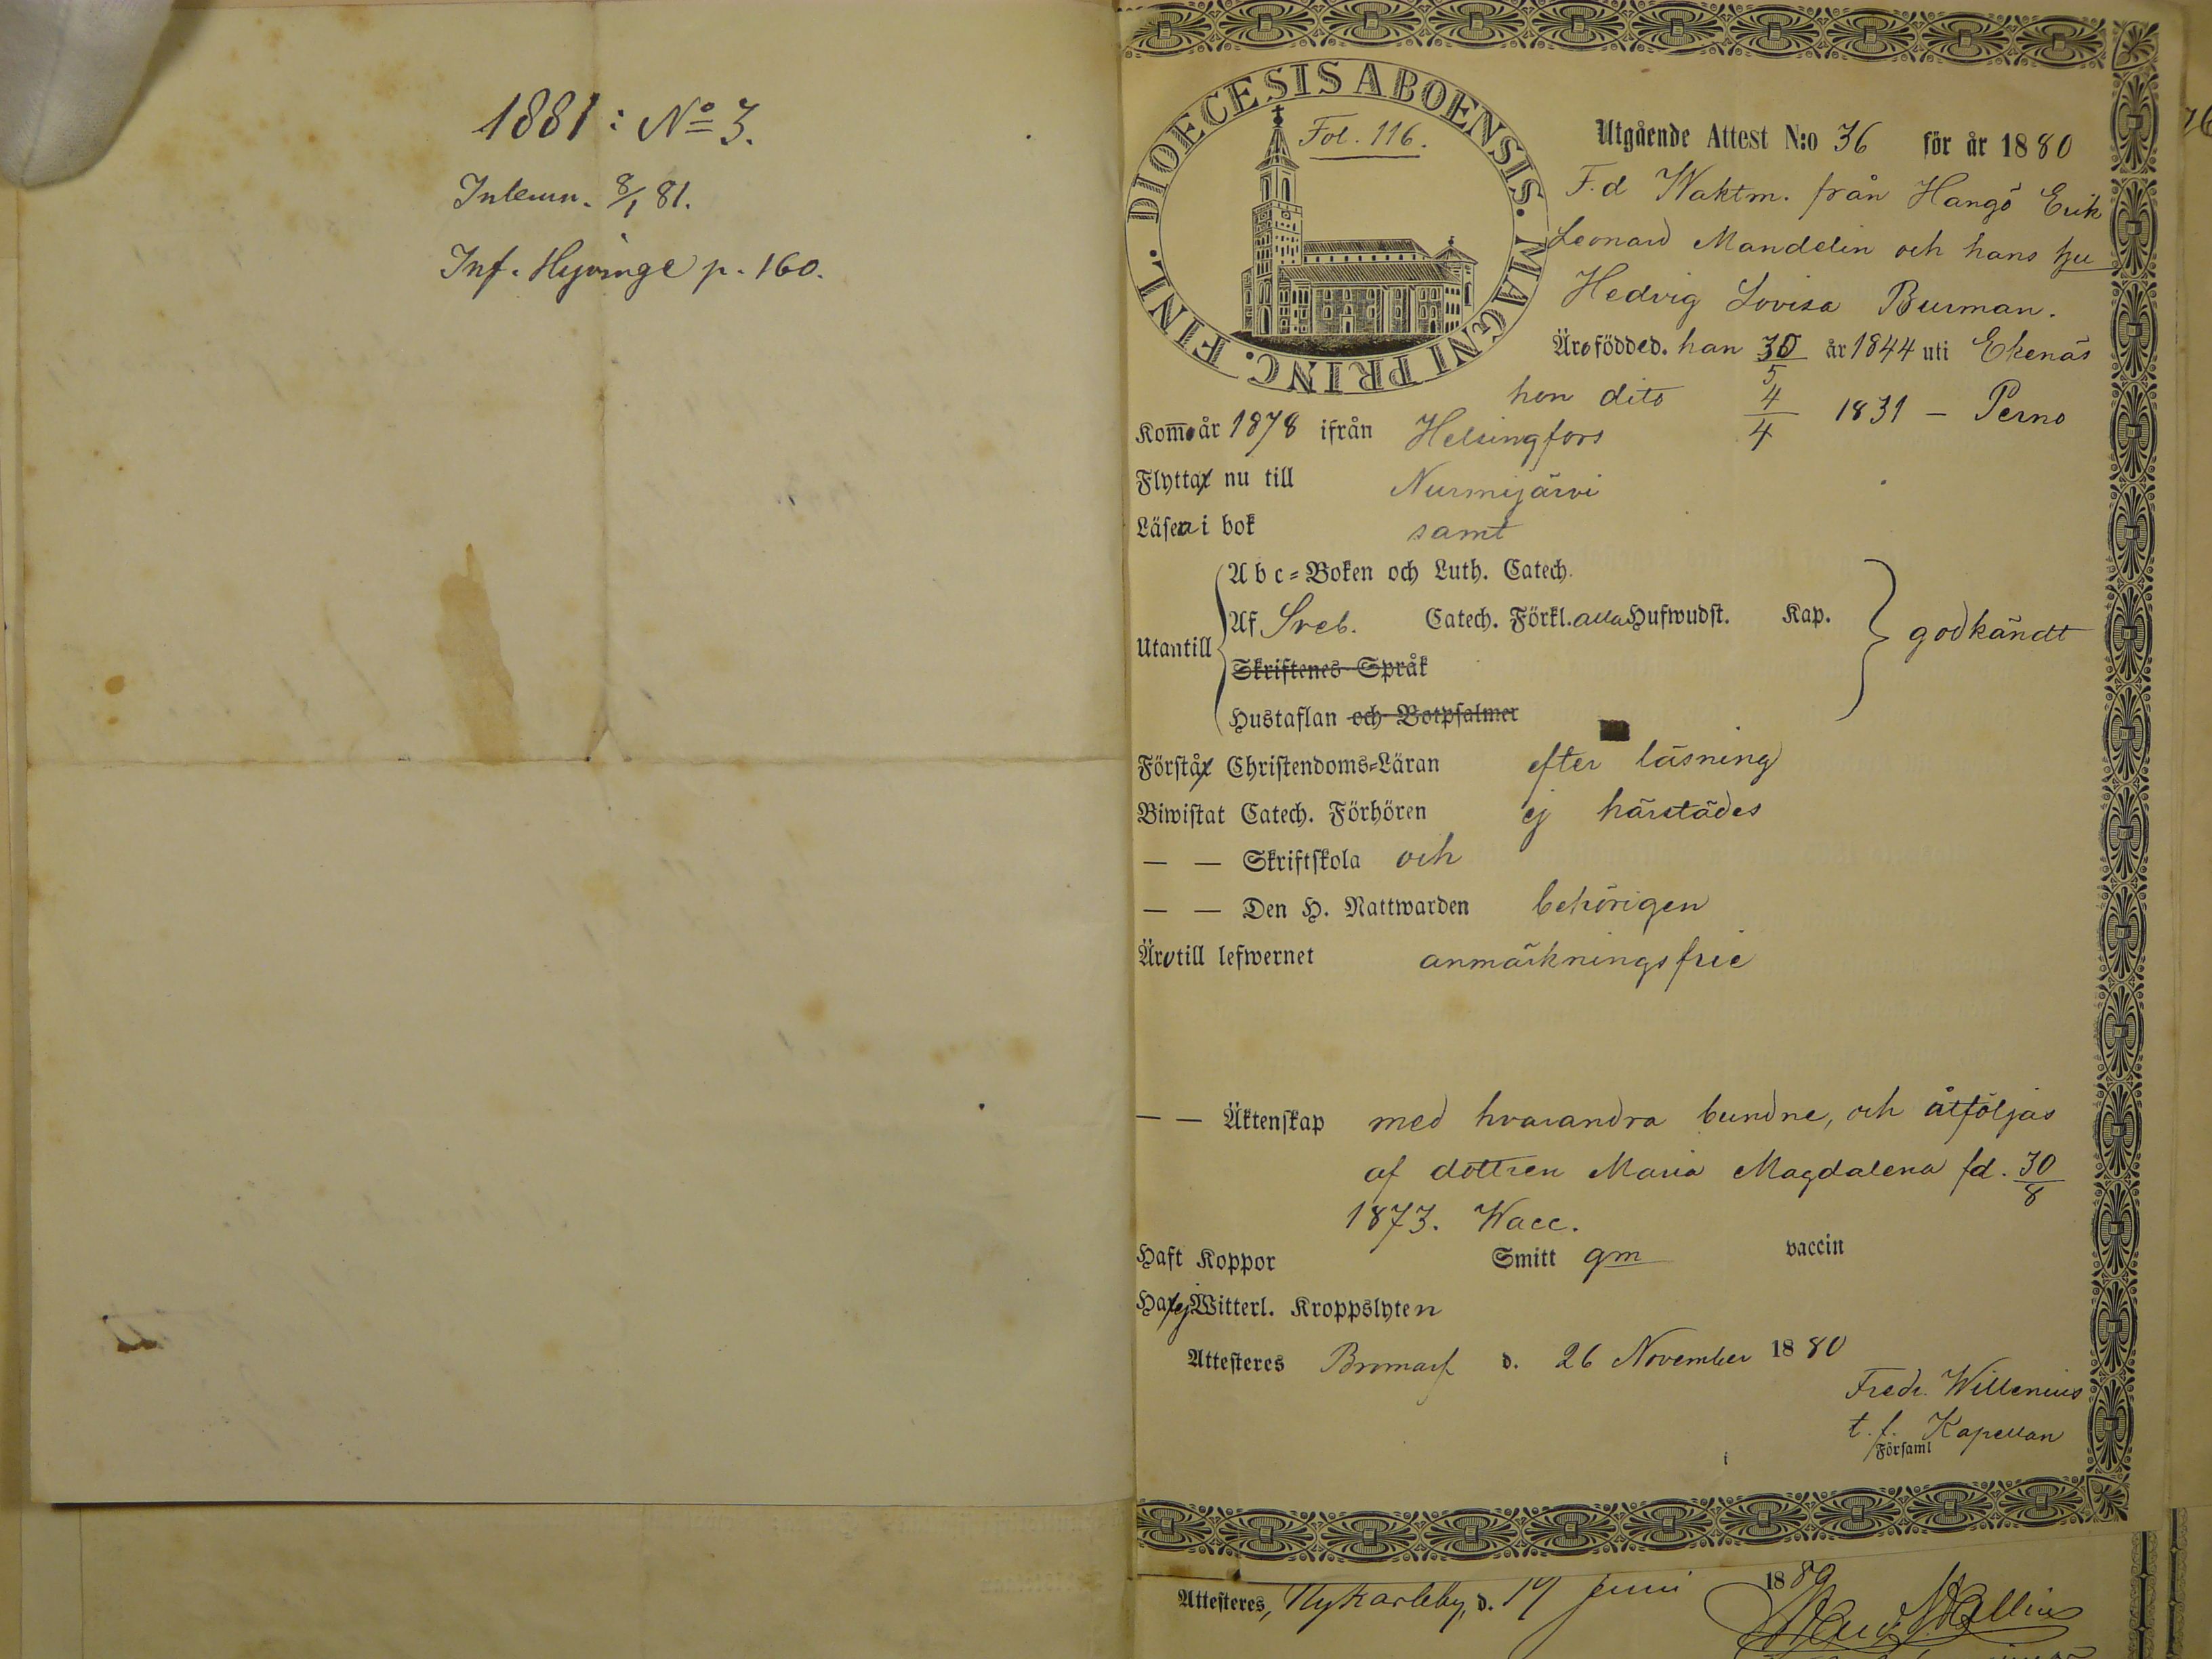 1881: No 3.
Intemn. 8/1 81.
Inf. Hyvinge p. 160.
DIOECESIS ABOENSIS. MAGNI PRINC. FINL.
Fol. 116.
Utgående Attest N:o 36 för år 1880
F.d Waktm. från Hangö Erik
Leonard Mandelin och hans hu
Hedvig Lovisa Burman.
Äro födde d. han 30/5 år 1844 uti Ekenäs
hon dito 4/4 1831 – Perno
Komo år 1878 ifrån Helsingfors
Flytta nu till Nurmijärvi
Läsa i bok samt
Utantill
A b c = Boken och Luth. Catech.
Af Sveb. Catech. Förkl. alla Hufwudst. Kap.
godkändt
Skriftenes Språk
Hustaflan och Botpsalmer
Förstå Christendoms=Läran efter läsning
Biwistat Catech. Förhören ej härstädes
— — Skriftskola och
— — Den H. Nattwarden behörigen
Äro till lefwernet anmärkningsfrie
— — Äktenskap med hvarandra bundne, och åtföljas
af dottren Maria Magdalena fd. 30/8
1873. Wacc.
Haft Koppor Smitt gm vaccin
Ha ej Witterl. Kroppslyten
Attesteres Bromarf d. 26 November 1880
Fredr. Willenius
t. f. Kapellan
i Församl
Attesteres, Nykarleby, d. 19 Juni 1880